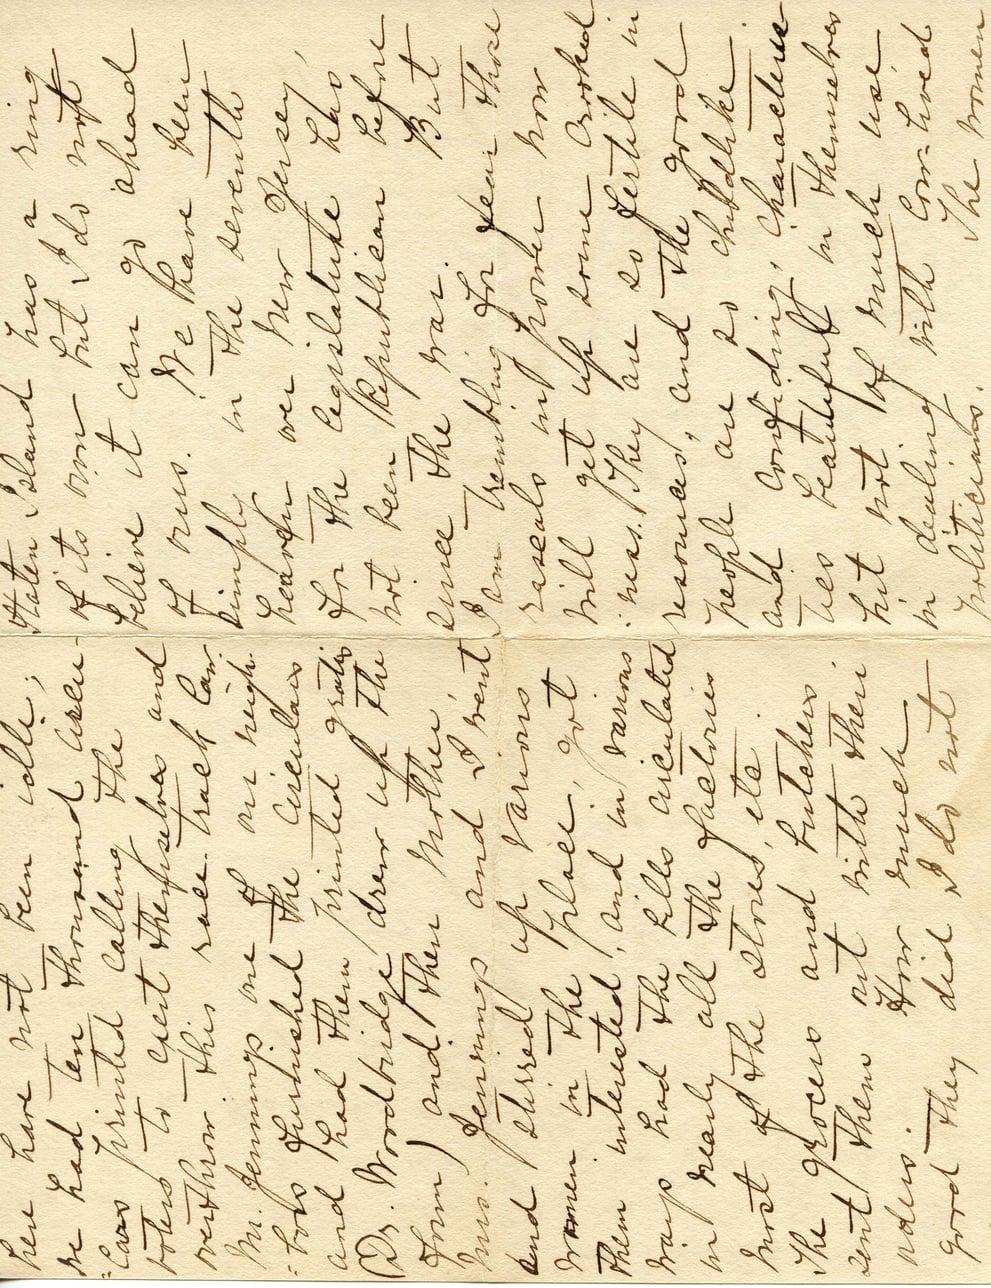 here have not been idle;
we had ten thousand circu-
-lars printed calling the
voters to exert themselves and
overthrow this race-track law.
Mr. Jennings one of our neigh-
-bors furnished the circulars
and had them printed gratis
(Dr. Woodbridge drew up the
form) and then Mother
Mrs. Jennings and I went
and stirred up various
women in the place, got
them interested, and in various
ways had the bills circulated
in nearly all the factories
most of the stores, etc.
The grocers and butchers
sent them out with their
orders. How much
good they did I do not
Staten Island has a ring
of its own but I do not
believe it can go ahead
of ours. We have been
simply in the seventh
heaven over New Jersey,
for the legislature has
not been Republican before
since the war. But
I am trembling for fear those
rascals in power now
will get up some crooked
ness. They are so fertile in
resources, and the good
people are so childlike
and confiding, characteris-
tics beautiful in themselves
but not of much use
in dealing with low-lived
politicians. The women